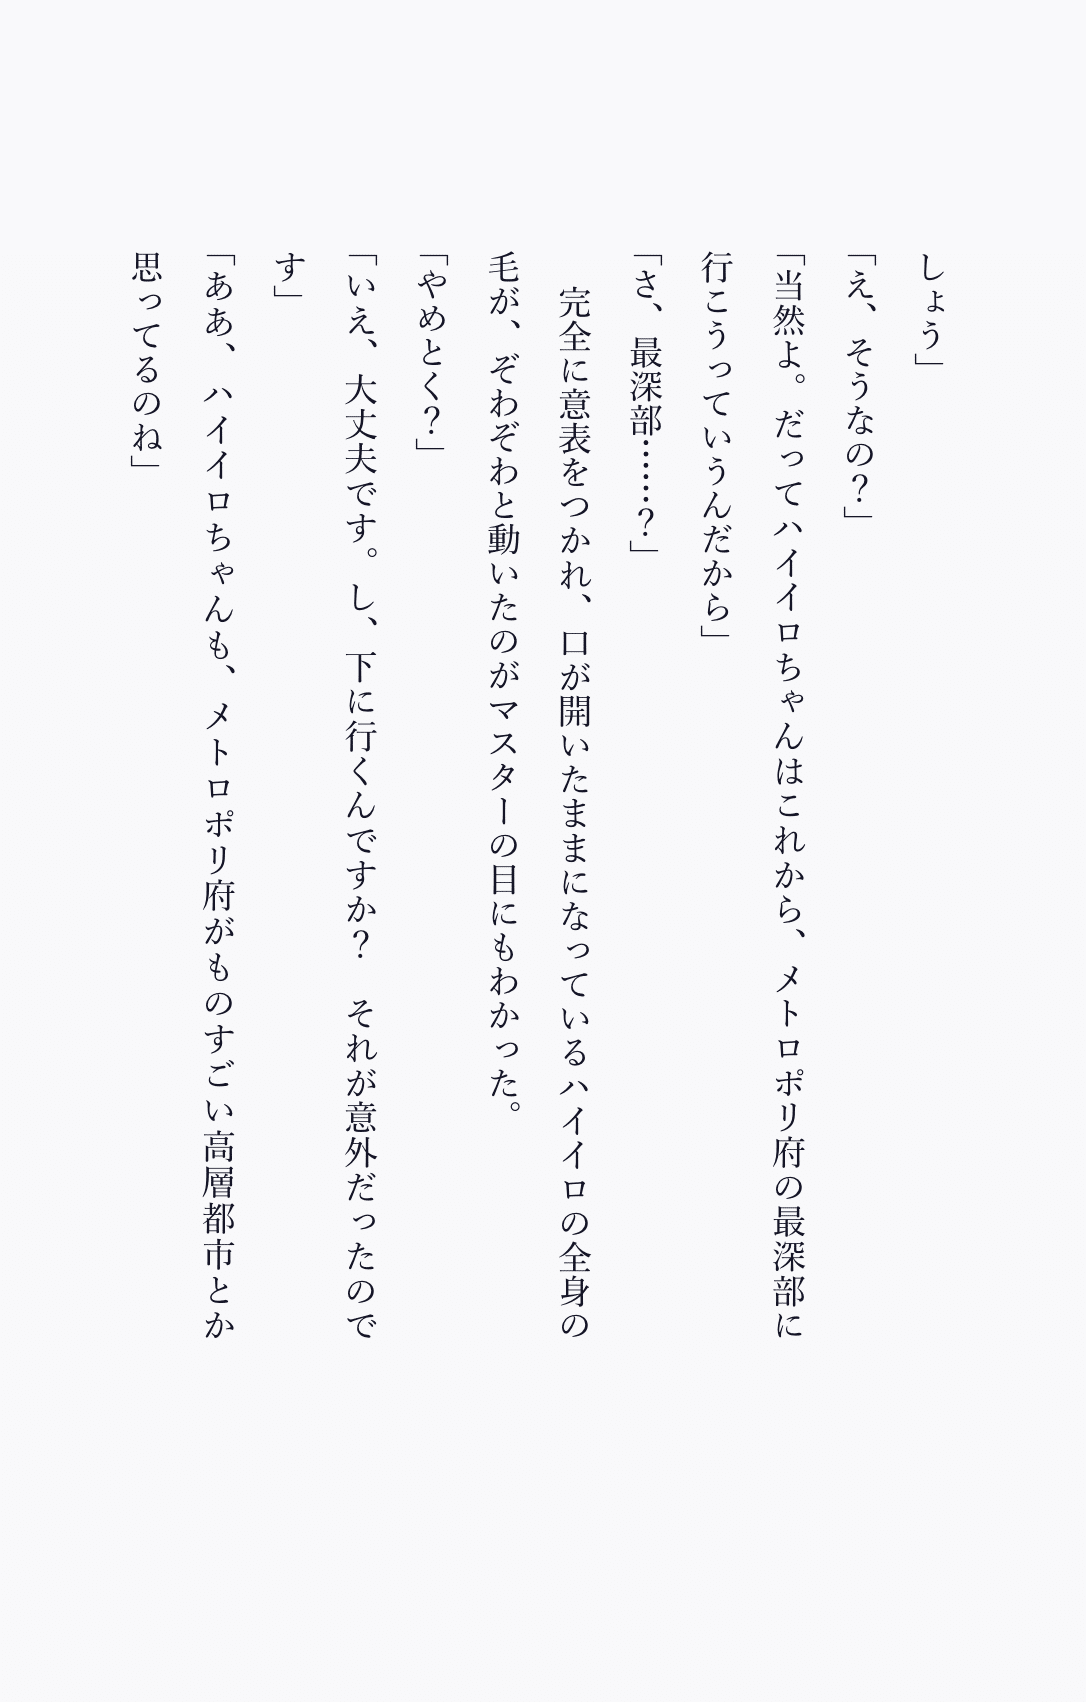 しょう」
「え、そうなの？」
「当然よ。だってハイイロちゃんはこれから、メトロポリ府の最深部に
行こうっていうんだから」
「さ、最深部……？」
　完全に意表をつかれ、口が開いたままになっているハイイロの全身の
毛が、ぞわぞわと動いたのがマスターの目にもわかった。
「やめとく？」
「いえ、大丈夫です。し、下に行くんですか？　それが意外だったので
す」
「ああ、ハイイロちゃんも、メトロポリ府がものすごい高層都市とか
思ってるのね」